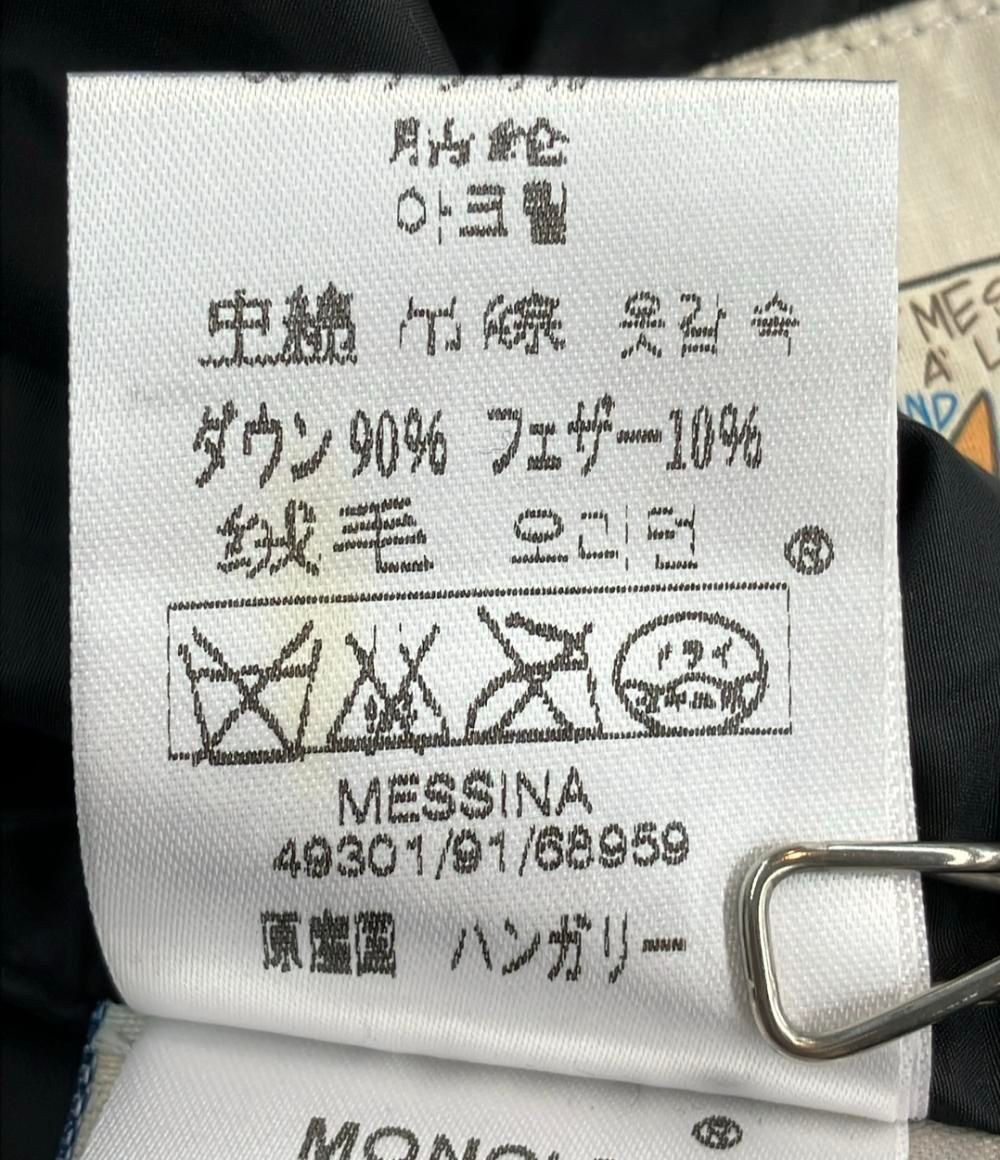 아크릴
中綿 옷감 속
ダウン90% フェザー10%
绒毛 오리털
Ⓡ
ドライ
MESSINA
49301/91/68959
原産国 ハンガリー
MONCL
MES
A' L
ND